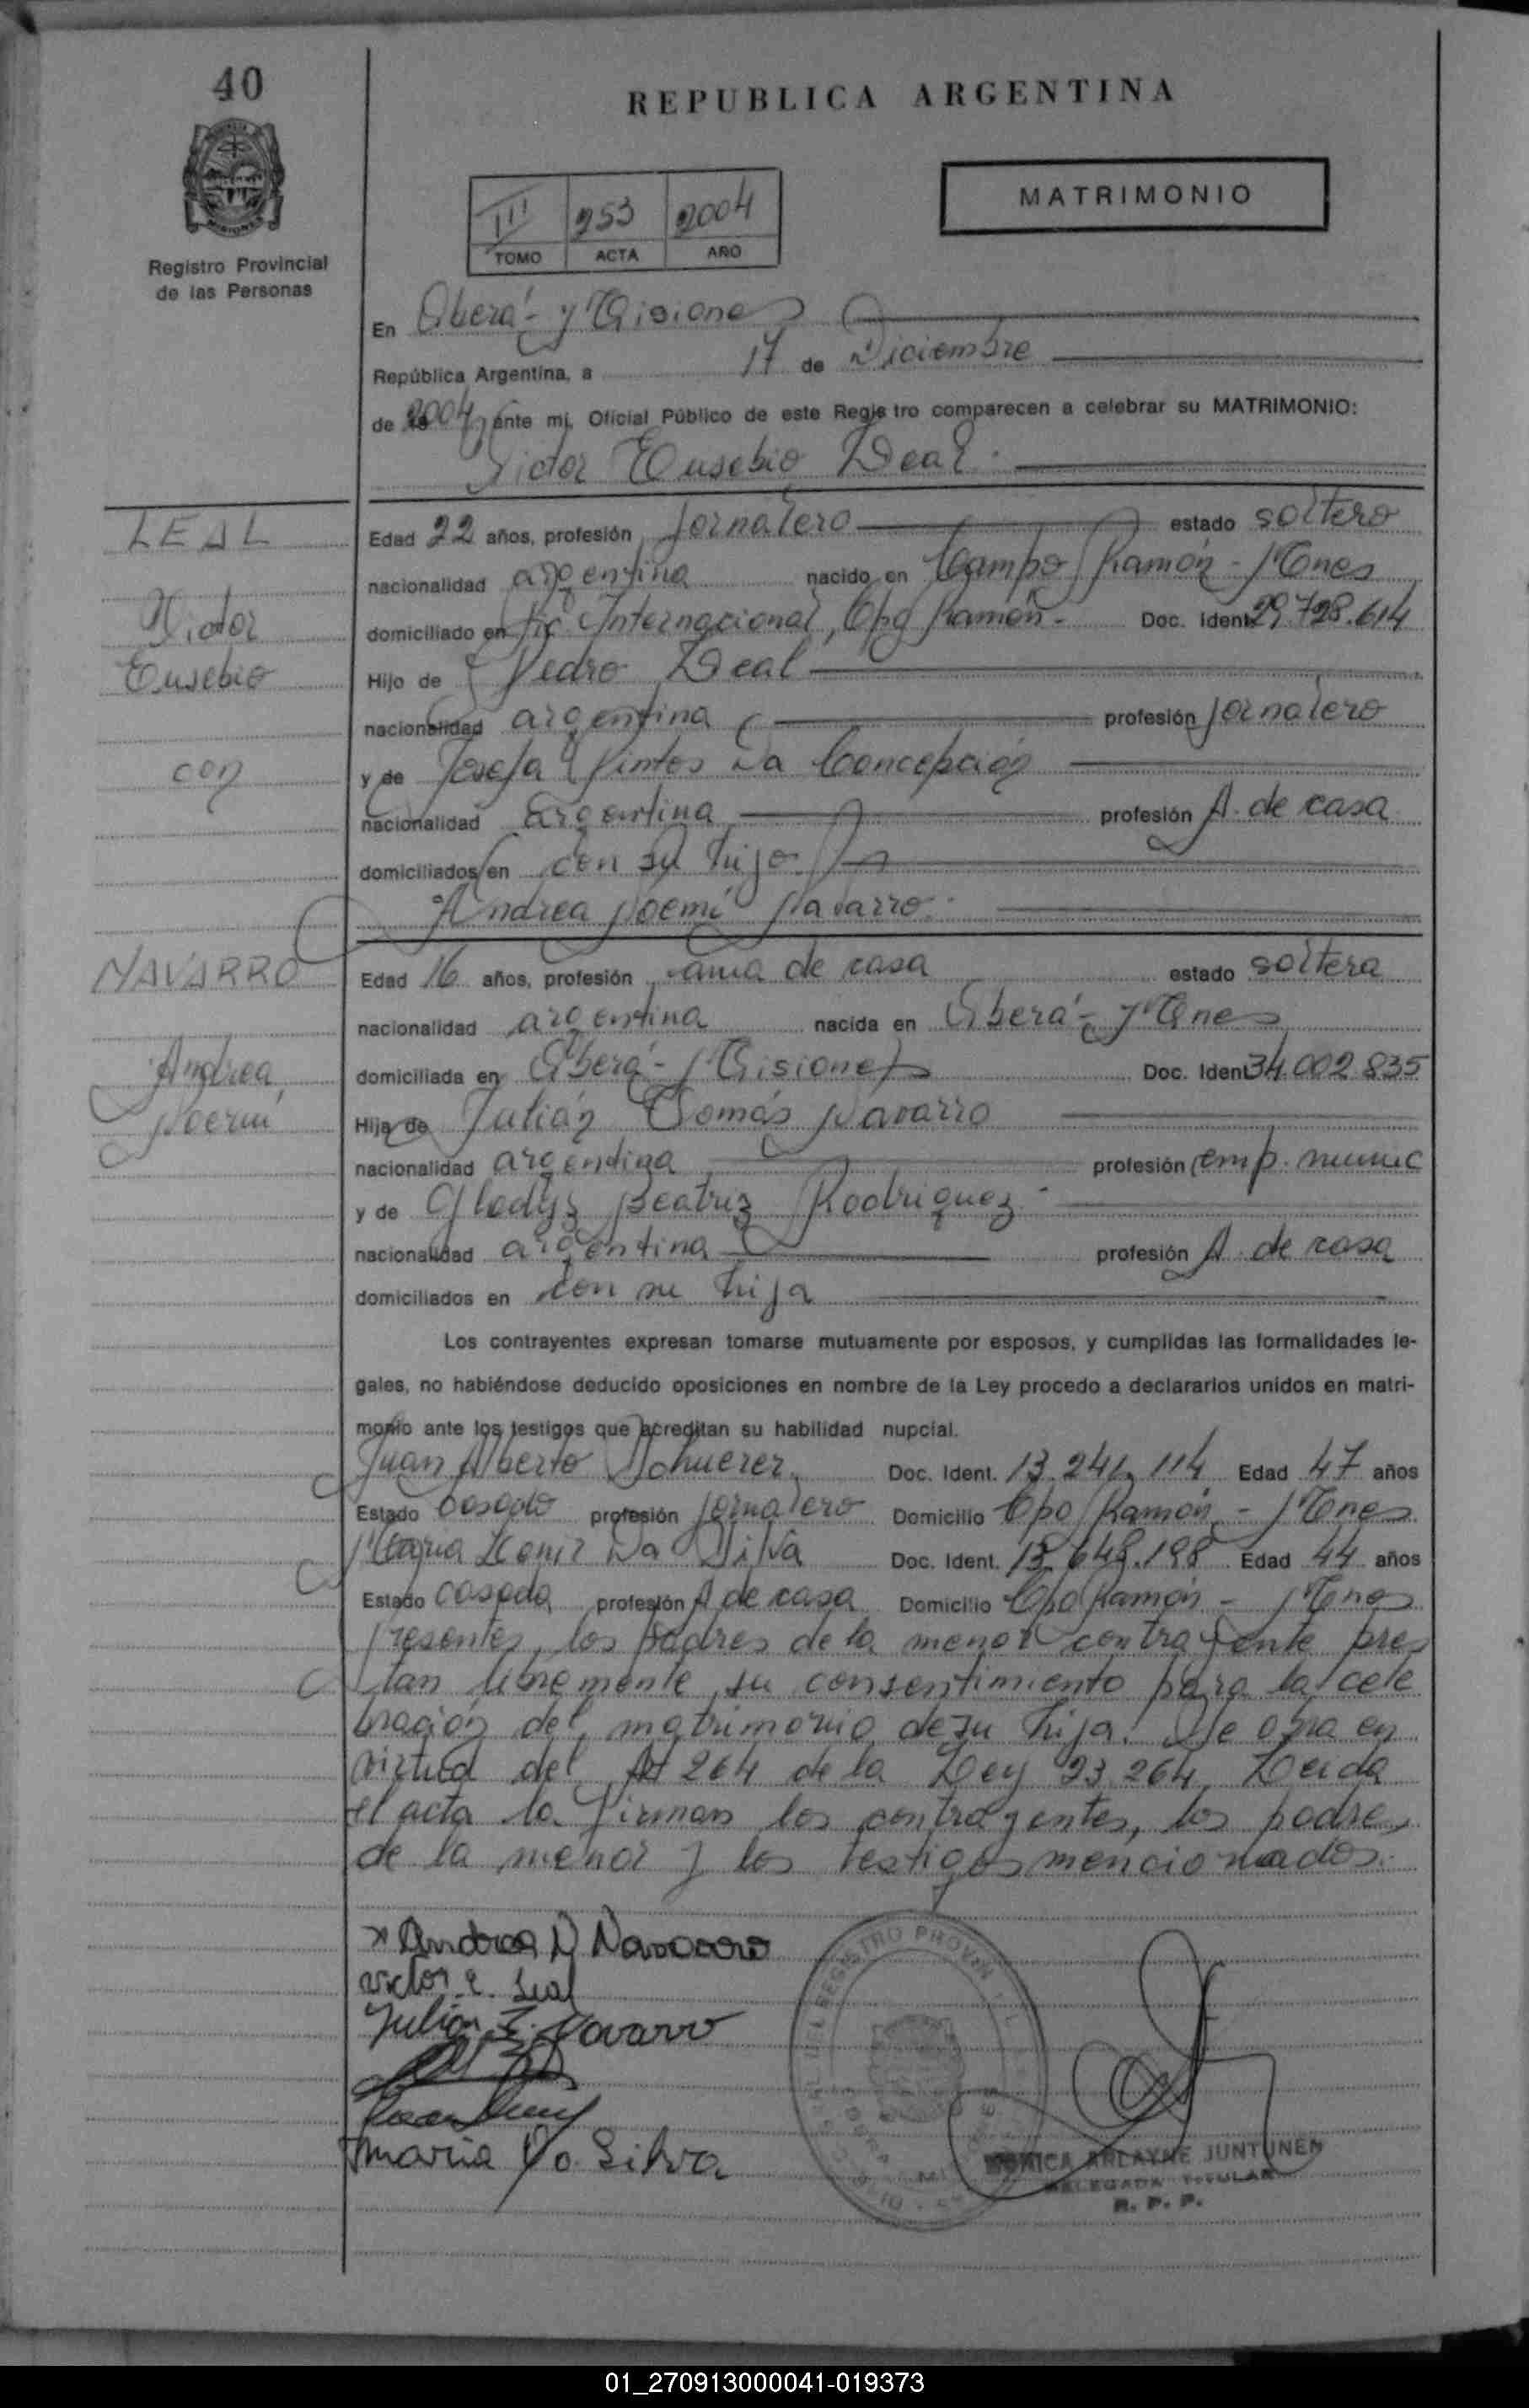 40
REPUBLICA ARGENTINA
MATRIMONIO
III 253 2004
TOMO ACTA AÑO
Registro Provincial
de las Personas
En Oberá - Misiones
República Argentina, a 17 de Diciembre
de 2004, ante mí, Oficial Público de este Registro comparecen a celebrar su MATRIMONIO:
Victor Eusebio Leal.
LEAL
Victor
Eusebio
con
NAVARRO
Andrea
Noemí
Edad 22 años, profesión Jornalero estado soltero
nacionalidad argentina nacido en Campo Ramón - Mnes
domiciliado en Pic. Internacional, Cpo Ramón - Doc. Ident. 29.728.614
Hijo de Pedro Leal
nacionalidad argentina profesión Jornalero
y de Josefa Pintos Da Concepción
nacionalidad argentina profesión A. de casa
domiciliados en con su hijo
Andrea Noemí Navarro.
Edad 16 años, profesión ama de casa estado soltera
nacionalidad argentina nacida en Oberá - Mnes
domiciliada en Oberá - Misiones Doc. Ident. 34.002.835
Hija de Julián Tomás Navarro
nacionalidad argentina profesión emp. munic
y de Gladys Beatriz Rodriguez.
nacionalidad argentina profesión A. de casa
domiciliados en con su hija
Los contrayentes expresan tomarse mutuamente por esposos, y cumplidas las formalidades le-
gales, no habiéndose deducido oposiciones en nombre de la Ley procedo a declararlos unidos en matri-
monio ante los testigos que acreditan su habilidad nupcial.
Juan Alberto Schuerer, Doc. Ident. 13.241.114 Edad 47 años
Estado casado profesión jornalero Domicilio Cpo Ramón - Mnes
Maria Da Silva Doc. Ident. 13.648.198 Edad 44 años
Estado casada profesión A de casa Domicilio Cpo Ramón - Mnes
Presentes, los padres de la menor contrayente pres
tan libremente su consentimiento para la cele
bración del matrimonio de su hija. Se obra en
virtud del Art 264 de la Ley 23.264. Leida
el acta la firman los contrayentes, los padres
de la menor y los testigos mencionados.
x Andrea N Navarro
victor. e. Leal
Julián T. Navarro
Maria Da. Silva
MONICA ARLAYNE JUNTUNEN
DELEGADA TITULAR
R. P. P.
01_270913000041-019373